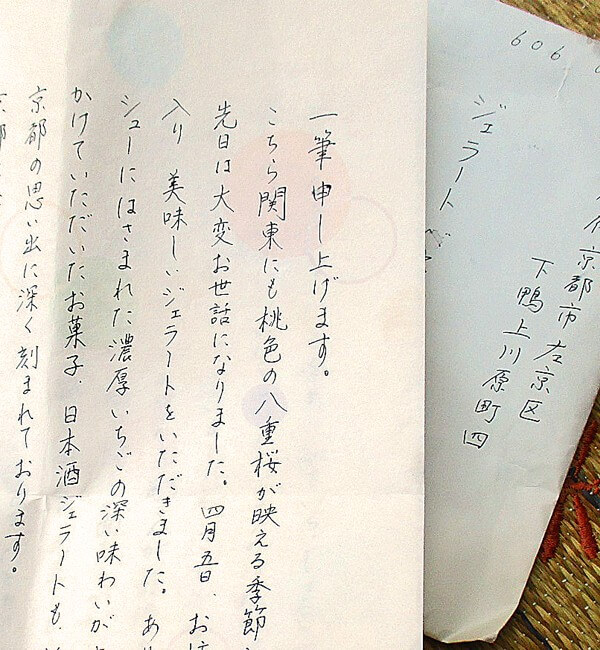 一筆申し上げます。
こちら関東にも桃色の八重桜が映える季節
先日は大変お世話になりました。四月五日、お
入り 美味しいジェラートをいただきました。あ
シューにはさまれた濃厚いちごの深い味わいが
かけていただいたお菓子、日本酒ジェラートも、
京都の思い出に深く刻まれております。
606
京都市左京区
下鴨上川原町四
ジェラート